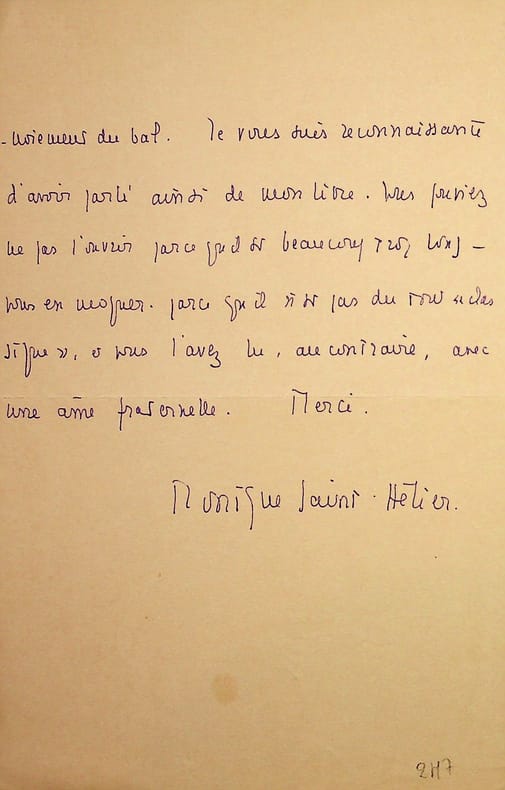 -noiement du bal. Je vous suis reconnaissante
d'avoir parlé ainsi de mon livre. Vous pouviez
ne pas l'ouvrir parce qu'il est beaucoup trop long –
vous en moquer. parce qu'il n'est pas du tout « clas
sique », et vous l'avez lu, au contraire, avec
une âme fraternelle. Merci.
Monique Saint-Hélier.
2117